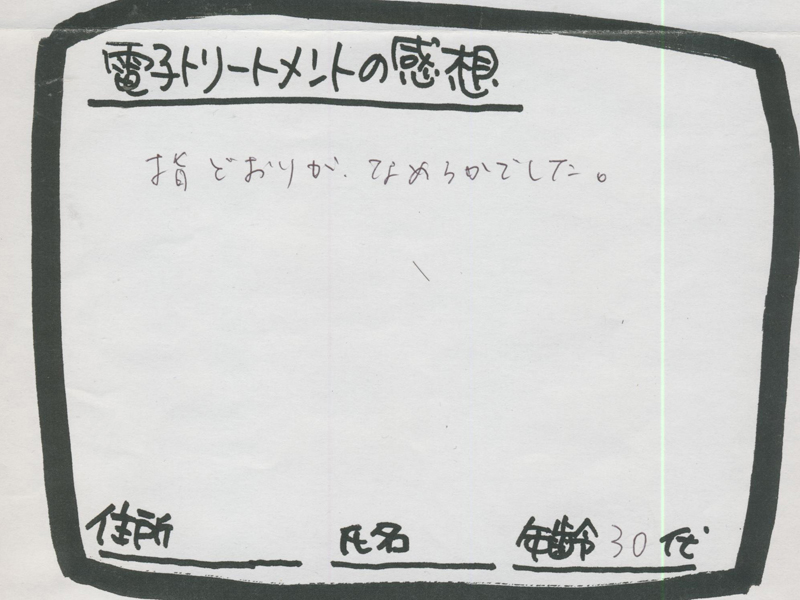 電子トリートメントの感想
指どおりが、なめらかでした。
住所 氏名 年齢 30代